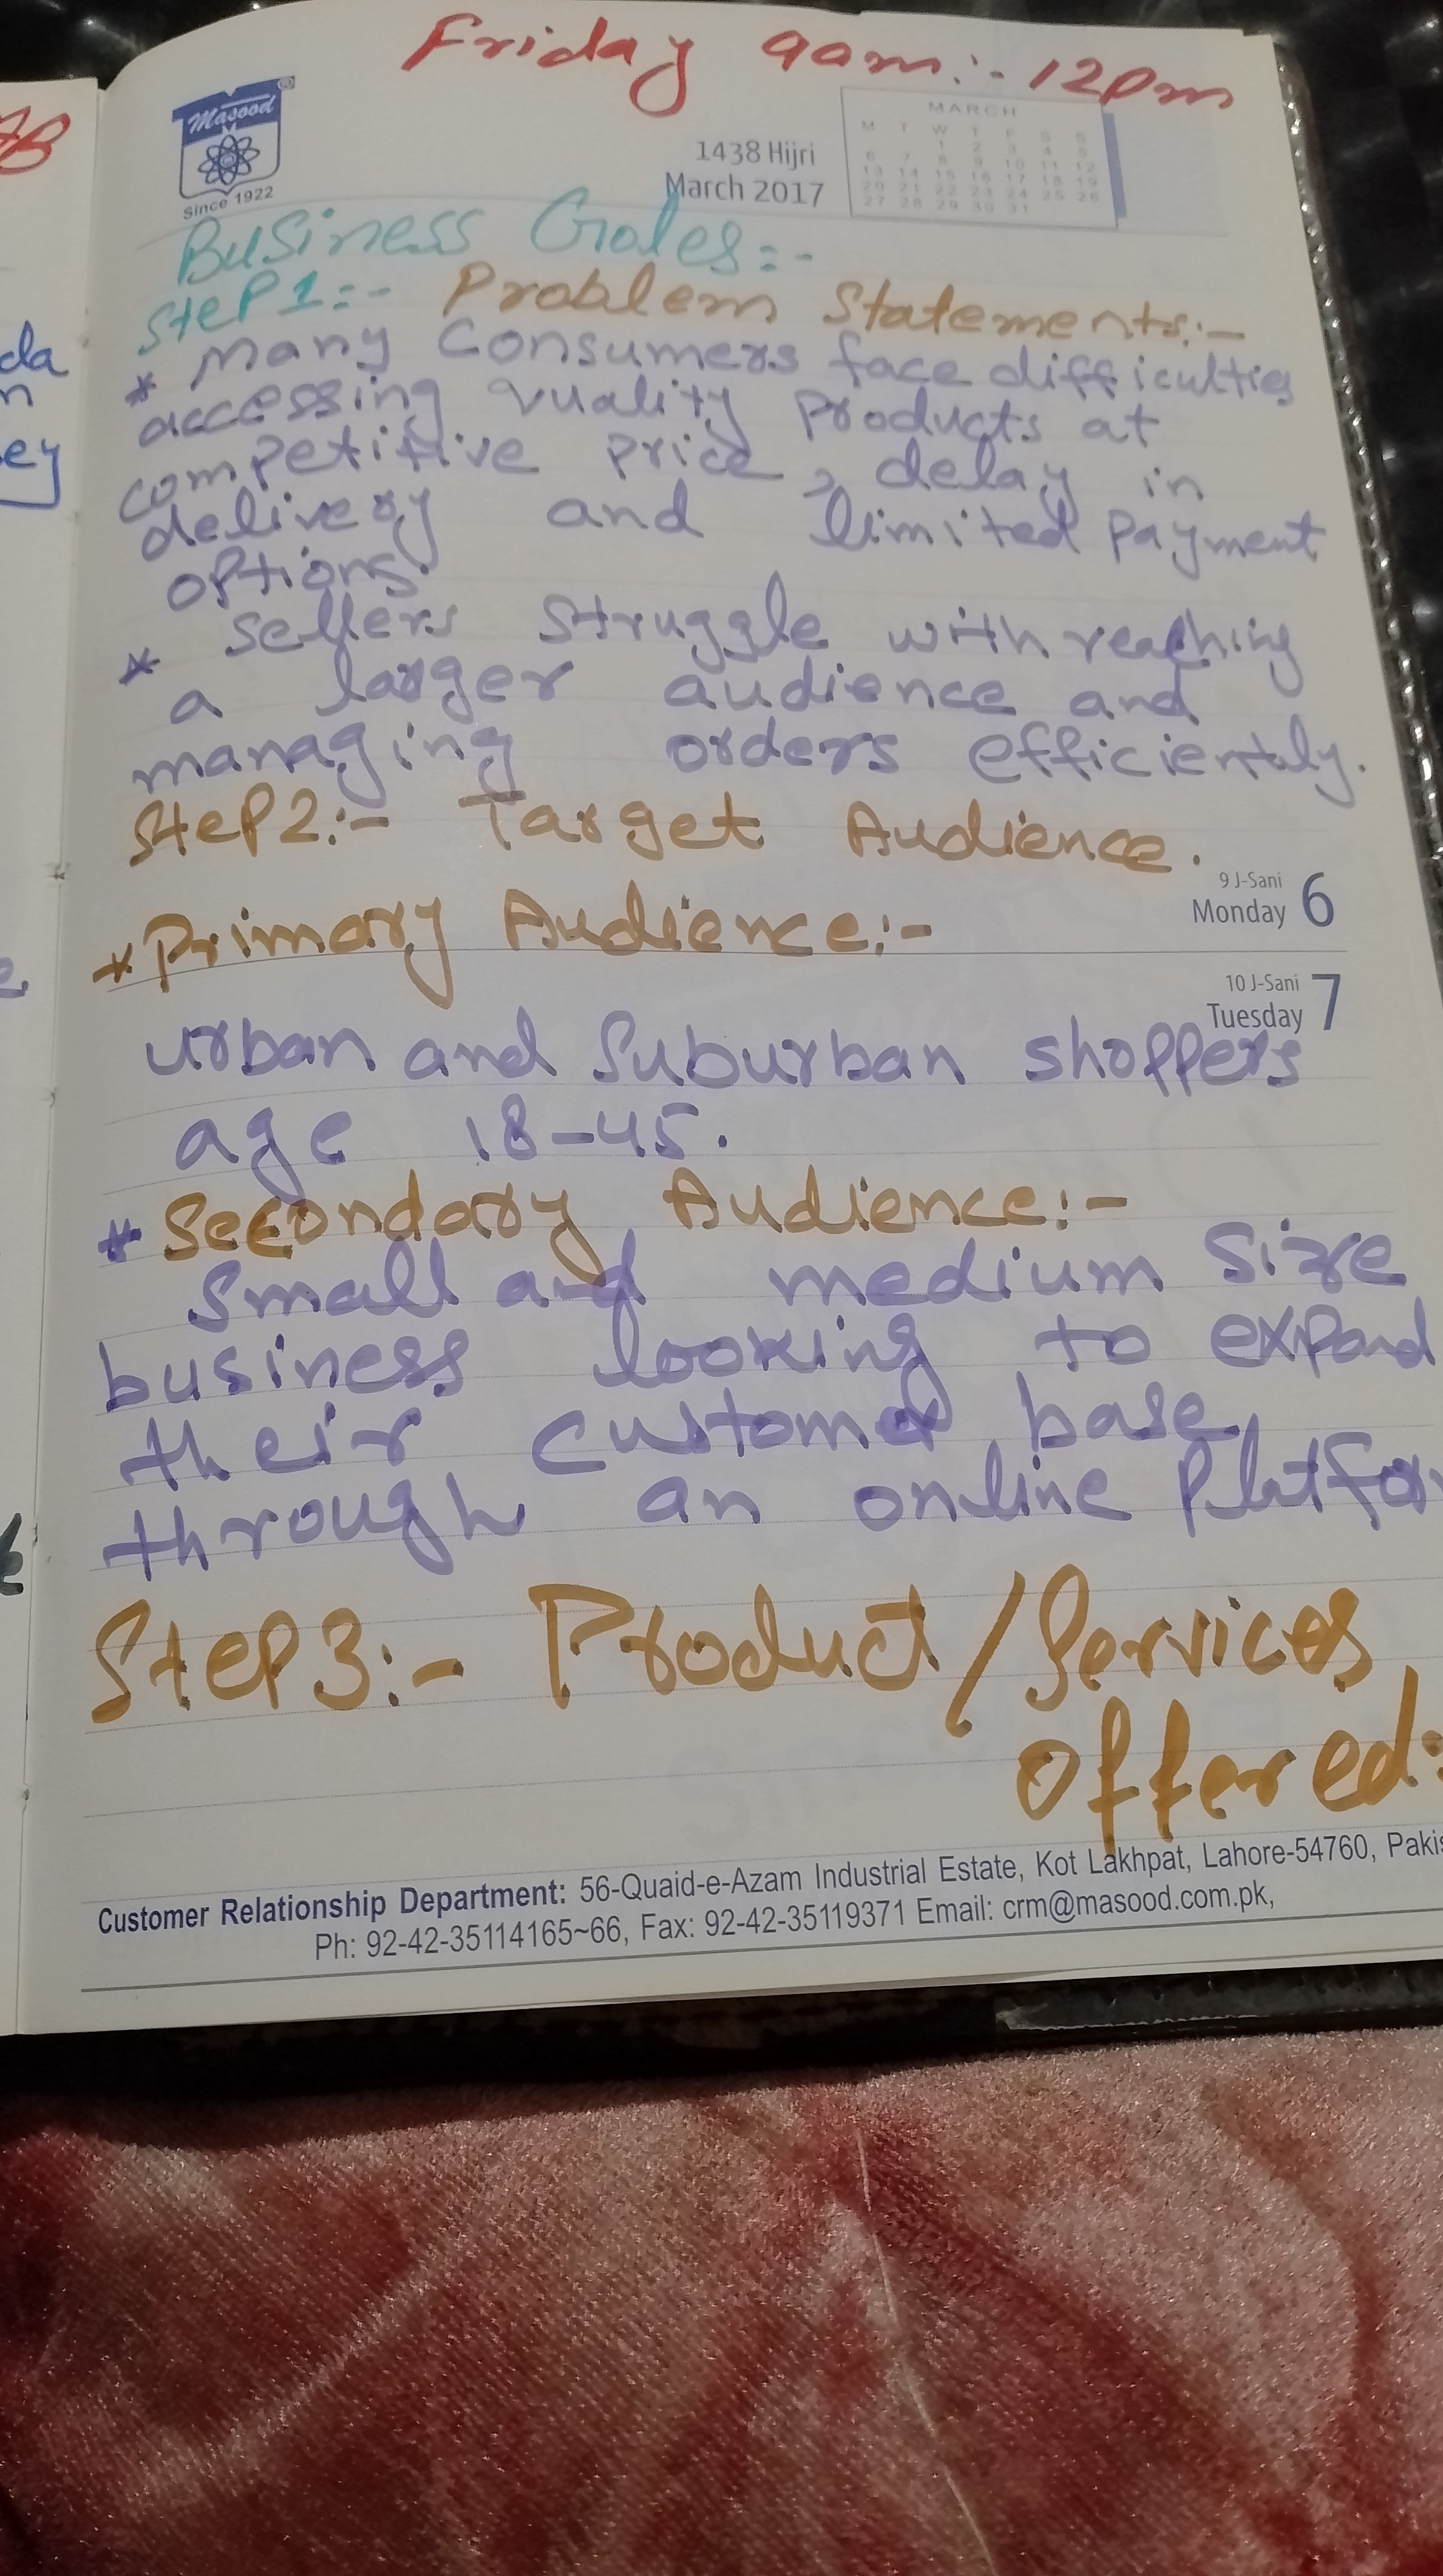 Friday 9am:- 12pm
Masood
Since 1922
1438 Hijri
March 2017
MARCH
M T W T F S S
1 2 3 4 5
6 7 8 9 10 11 12
13 14 15 16 17 18 19
20 21 22 23 24 25 26
27 28 29 30 31
Business Goles:-
Step1:- Problem Statements:-
* Many Consumers face difficulties
accessing quality products at
competitive price, delay in
delivery and limited payment
options.
* Sellers struggle with reaching
a larger audience and
managing orders efficiently.
Step2:- Target Audience.
9 J-Sani
Monday 6
* Primary Audience:-
10 J-Sani
Tuesday 7
urban and Suburban shoppers
age 18-45.
* Secondary Audience:-
Small and medium size
business looking to expand
their customer base
through an online Platfor
Step3:- Product/Services
offered:
Customer Relationship Department: 56-Quaid-e-Azam Industrial Estate, Kot Lakhpat, Lahore-54760, Pakis
Ph: 92-42-35114165~66, Fax: 92-42-35119371 Email: crm@masood.com.pk,
da
n
ey